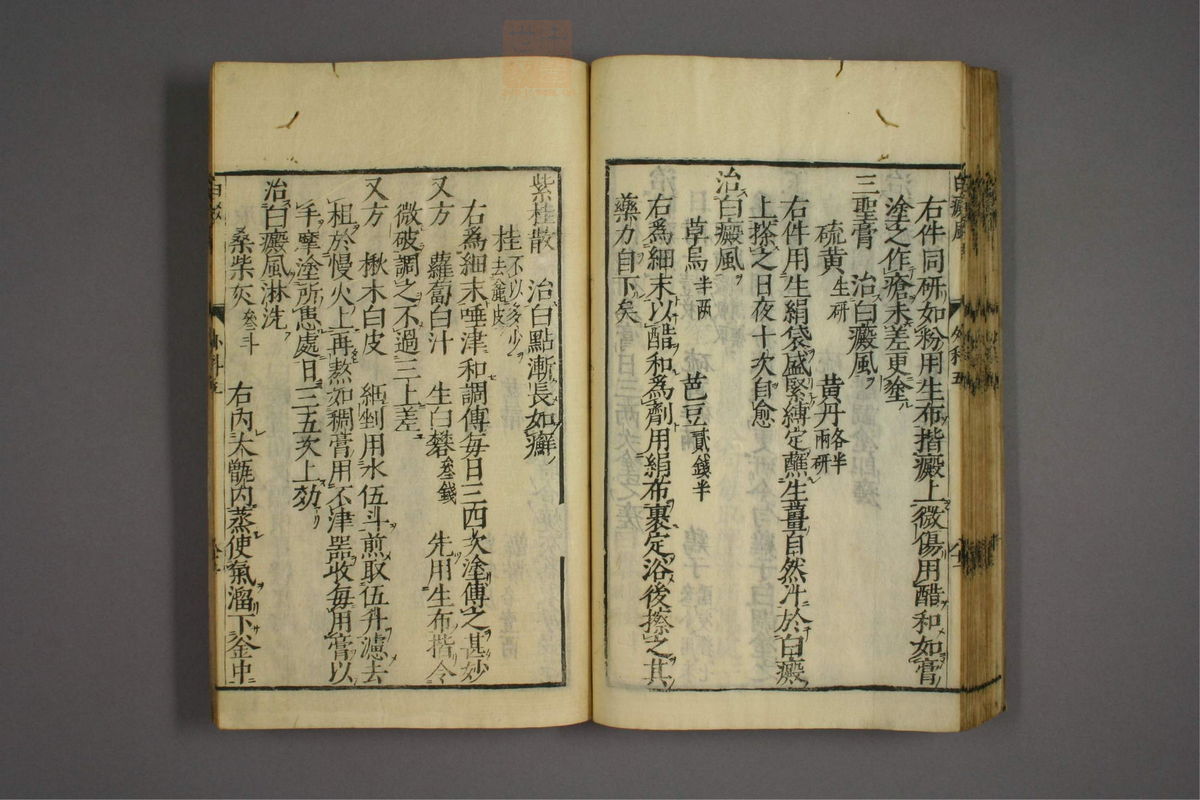 右件同研如粉用生布揩癜上微傷用醋和如膏
塗之作瘡未差更塗
三聖膏　治白癜風
硫黄生研　黄丹各半兩研
右件用生絹袋盛緊縛定蘸生薑自然汁於白癜
上搽之日夜十次自愈
治白癜風
草烏半兩　芭豆貳錢半
右為細末以醋和為劑用絹布裹定浴後擦之其
藥力自下矣
紫桂散　治白點漸長如癬
桂不以多少去麁皮
右為細末唾津和調傅每日三四次塗傅之甚妙
又方　蘿蔔白汁　生白礬叄錢　先用生布揩令
微破調之不過三上差
又方　楸木白皮　細剉用水伍斗煎取伍升濾去
柤於慢火上再熬如稠膏用不津器收每用膏以
手摩塗所患處日三五次上効
治白癜風淋洗
桑柴灰叄斗　右內大甑內蒸使氣溜下釜中